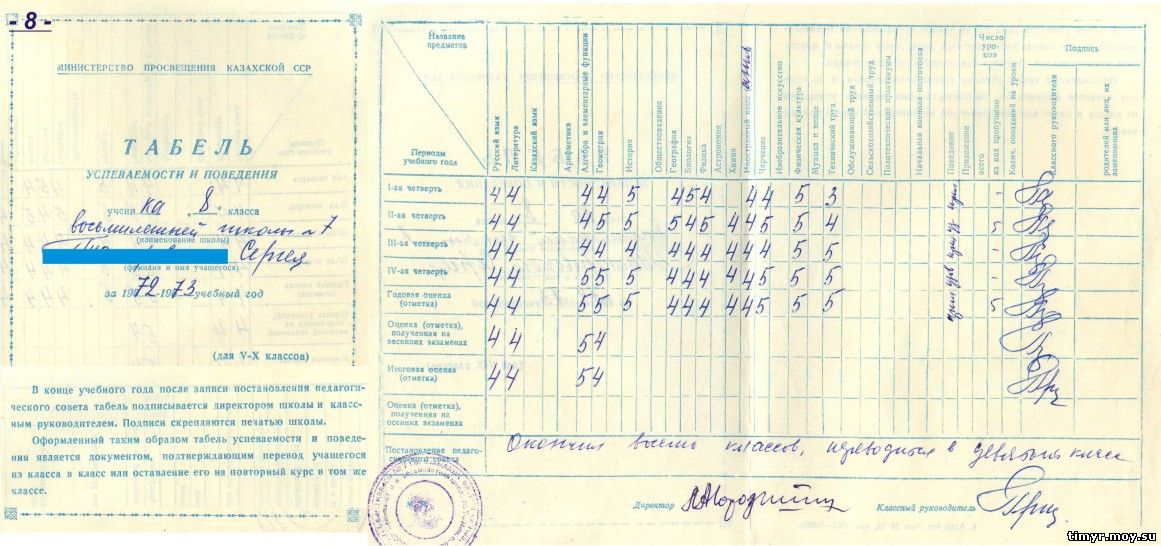 - 8 -
МИНИСТЕРСТВО ПРОСВЕЩЕНИЯ КАЗАХСКОЙ ССР
ТАБЕЛЬ
УСПЕВАЕМОСТИ И ПОВЕДЕНИЯ
учени ка „8" класса
восьмилетней школы №7
(наименование школы)
Сергея
(фамилия и имя учащегося)
за 1972-1973 учебный год
(для V-X классов)
В конце учебного года после записи постановления педагоги-
ческого совета табель подписывается директором школы и класс-
ным руководителем. Подписи скрепляются печатью школы.
Оформленный таким образом табель успеваемости и поведе-
ния является документом, подтверждающим перевод учащегося
из класса в класс или оставление его на повторный курс в том же
классе.
Название
предметов
Периоды
учебного года
Русский язык
Литература
Казахский язык
Арифметика
Алгебра и элементарные функции
Геометрия
История
Обществоведение
География
Биология
Физика
Астрономия
Химия
Иностранный язык
Черчение
Изобразительное искусство
Физическая культура
Музыка и пение
Технический труд
Обслуживающий труд
Сельскохозяйственный труд
Политехнические практикумы
Начальная военная подготовка
Поведение
Прилежание
Число
уро-
ков
всего
из них пропущено
Колич. опозданий на уроки
Подпись
классного руководителя
родителей или лиц, их
заменяющих
I-ая четверть 4 4 4 4 5 4 5 4 4 4 5 3
II-ая четверть 4 4 4 5 5 5 4 5 4 4 5 5 4 5
III-ья четверть 4 4 4 4 4 4 4 4 4 4 4 5 5
IV-ая четверть 4 4 5 5 5 4 4 4 4 4 5 5 5
Годовая оценка
(отметка) 4 4 5 5 5 4 4 4 4 4 5 5 5 5
Оценка (отметка),
полученная на
весенних экзаменах 4 4 5 4
Итоговая оценка
(отметка) 4 4 5 4
Оценка (отметка),
полученная на
осенних экзаменах
Постановление педаго-
гического совета Окончил восемь классов, переводится в девятый класс
Директор
Классный руководитель
timyr.moy.su